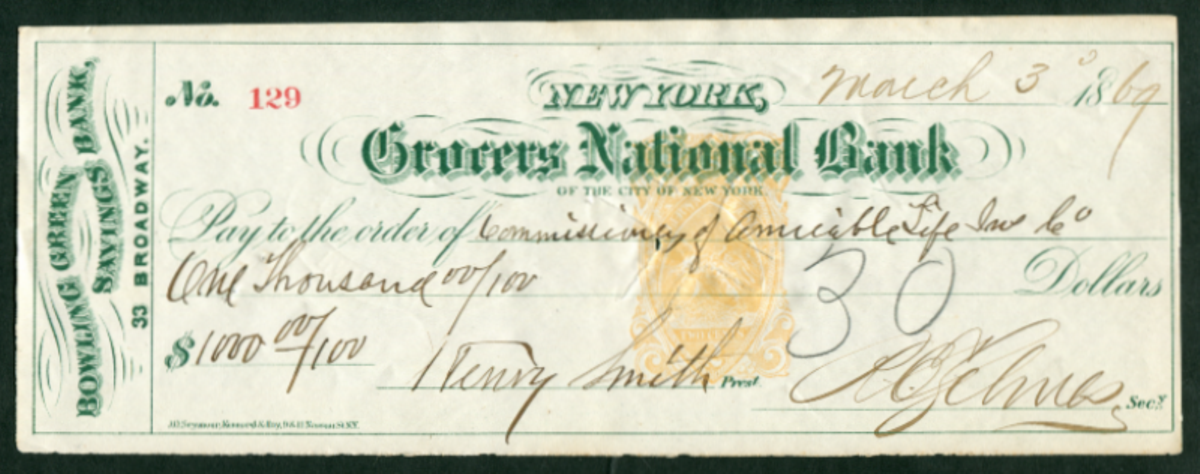 BOWLING GREEN
SAVINGS BANK,
33 BROADWAY.
No. 129
NEW YORK, March 3º 1869
Grocers National Bank
OF THE CITY OF NEW YORK.
Pay to the order of Commissioners of Amicable Life Ins Co
One Thousand 00/100 Dollars
30
$1000 00/100
Henry Smith Prest.
Secy.